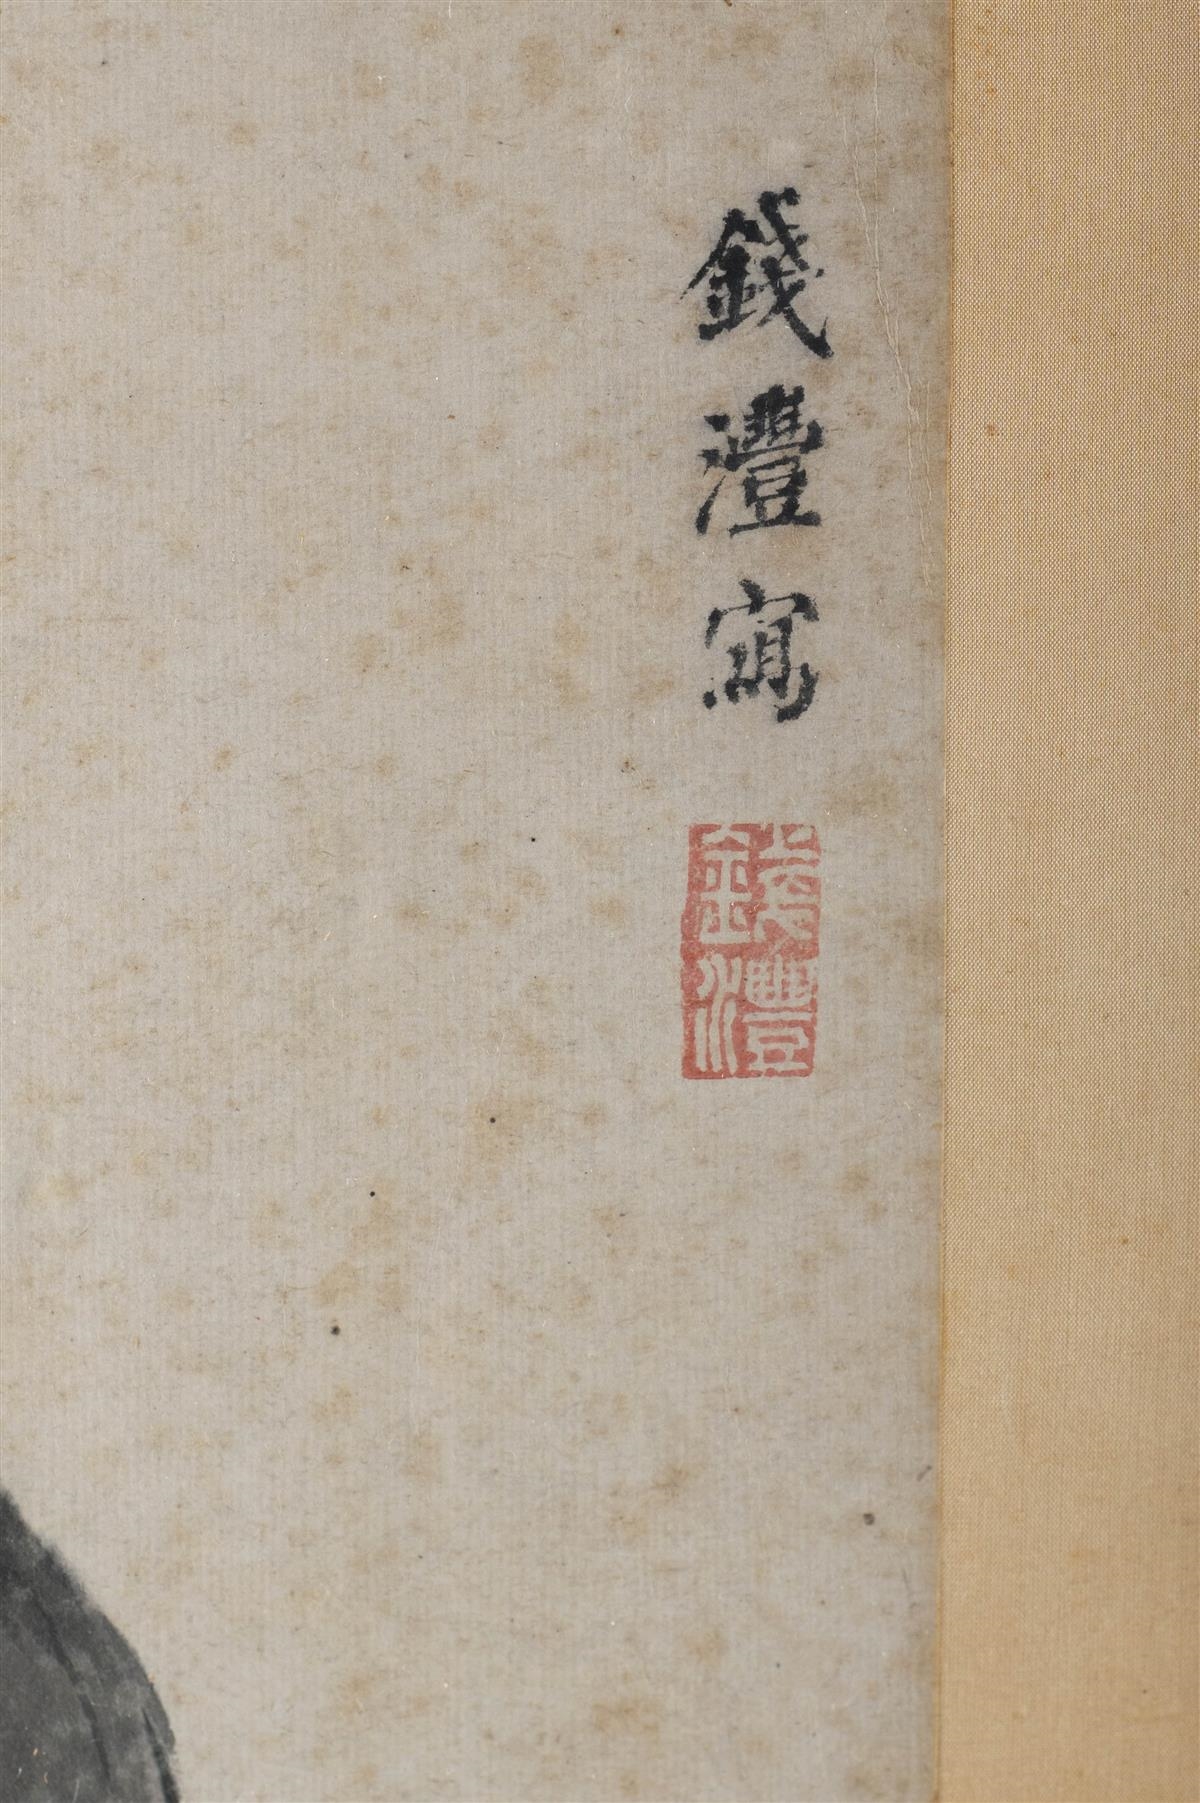 錢灃寫
錢灃